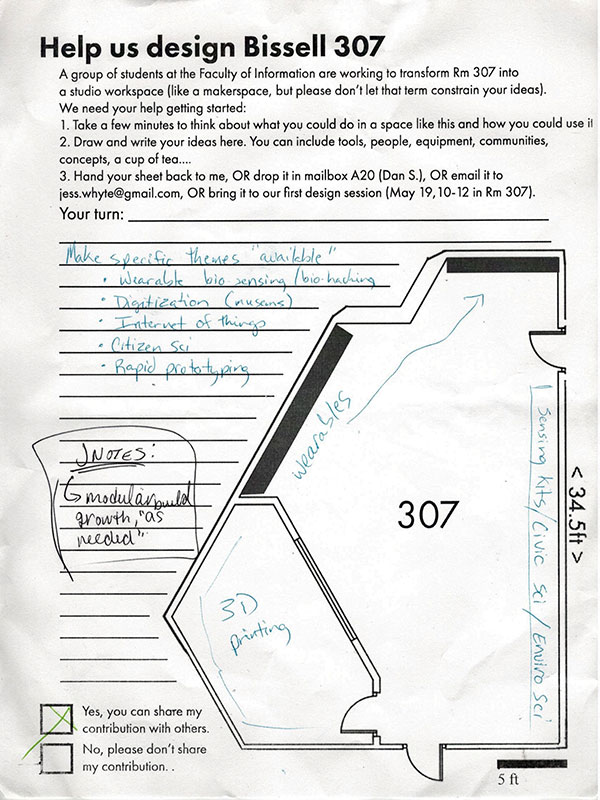 Help us design Bissell 307
A group of students at the Faculty of Information are working to transform Rm 307 into
a studio workspace (like a makerspace, but please don't let that term constrain your ideas).
We need your help getting started:
1. Take a few minutes to think about what you could do in a space like this and how you could use it
2. Draw and write your ideas here. You can include tools, people, equipment, communities,
concepts, a cup of tea....
3. Hand your sheet back to me, OR drop it in mailbox A20 (Dan S.), OR email it to
jess.whyte@gmail.com, OR bring it to our first design session (May 19,10-12 in Rm 307).
Your turn:
Make specific themes "available"
• Wearable bio sensing / bio-hacking
• Digitization (museums)
• Internet of things
• Citizen Sci
• Rapid prototyping
JNOTES:
modular build
growth, "as
needed"
wearables
307
3D
printing
Sensing Kits/Civic Sci / Enviro Sci
< 34.5ft >
Yes, you can share my
contribution with others.
No, please don't share
my contribution. .
5 ft